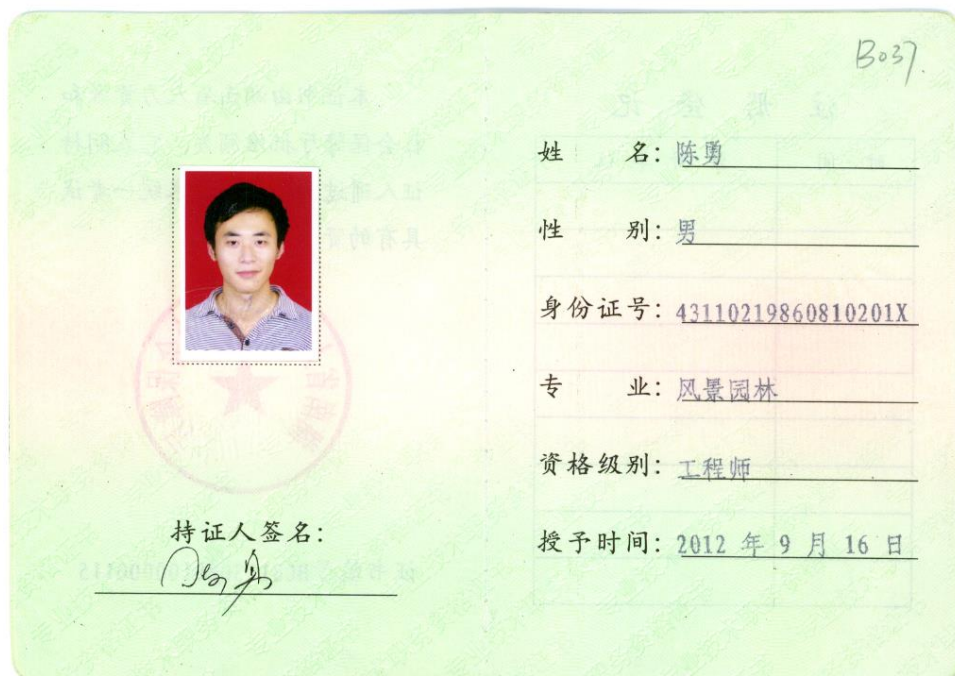 B037
姓 名：陈勇
性 别：男
身份证号：43110219860810201X
专 业：风景园林
资格级别：工程师
授予时间：2012 年 9 月 16 日
持证人签名：